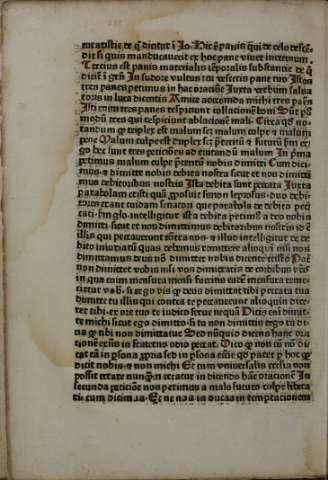 eucaristie de q̄ dicitur i Io. Hic ē panis qui de celo descē
dit si quis manducauerit ex hoc pane viuet in eternum.
Tercius est panis materialis tēporalis substancie de q̄
dicit i gen̄ In sudore vultus tui vesceris pane tuo Istos
tres panes petimus in hac oracione Iuxta verbum salua
toris in luca dicentis Amice accomoda michi tres panes
Isti enim tres panes respiciunt collationē boni Sūt ꝑs
modū tres qui respiciunt ablacionē mali Circa qd no
tandum ꝙ triplex est malum scꝫ malum culpe ⁊ malum
pene Malum culpe est duplex scꝫ preteritū ⁊ futurū ꝓm er
go hec sunt tres peticiones ad euitandū malum In prima
petimus malum culpe preteritū nobis dimitti Cum dici
mus ⁊ dimitte nobis debita nostra sicut et nos dimitti
mus debitoribus nostris Ista debita sunt peccata Iuxta
parabolam cristi quā proposuit simon leproso duo debi
tores erant cuidam senatori que parabola de debito pec
cati ꝑm glo. intelligitur ista debita petimus a deo nobis
dimitti sicut et nos dimittimus debitoribus nostris id ē
illis qui peccauerunt contra nos ⁊ illud intelligitur de de
bito iniuriarū quas debemus dimittere alioqui nisi nos
dimittamus deus nō dimittet nobis dicente cristo Pater
non dimittet vobis nisi vos dimittatis de cordibus vestris
in qua enim mensura mensi fueritis eadem mensura reme
cietur vobis si ergo vis ꝙ deus dimittat tibi peccata tua
dimitte tu illis qui contra te peccauerunt alioquin dice
tet tibi ex ore tuo te iudico serue nequā Dicis eni dimit
te michi sicut ego dimitto si tu non dimittis ergo tu di
cis ꝙ tibi non dimittatur Sed nūquid dicens hanc ora
cionē existēs in fraterno odio peccat Dico ꝙ non cū nō di
cat eā in ꝑsona ꝓpria sed in ꝑsona ecclie qd patet ꝑ hoc ꝙ
dicit nobis ⁊ non michi Et cum vniuersalis ecclesia non
possit errare nunꝗ erratur in dicendo hāc oracionē In
secunda peticione non petimus a malo futuro culpe libera
ri cum dicimus. Et ne nos inducas in temptacionem